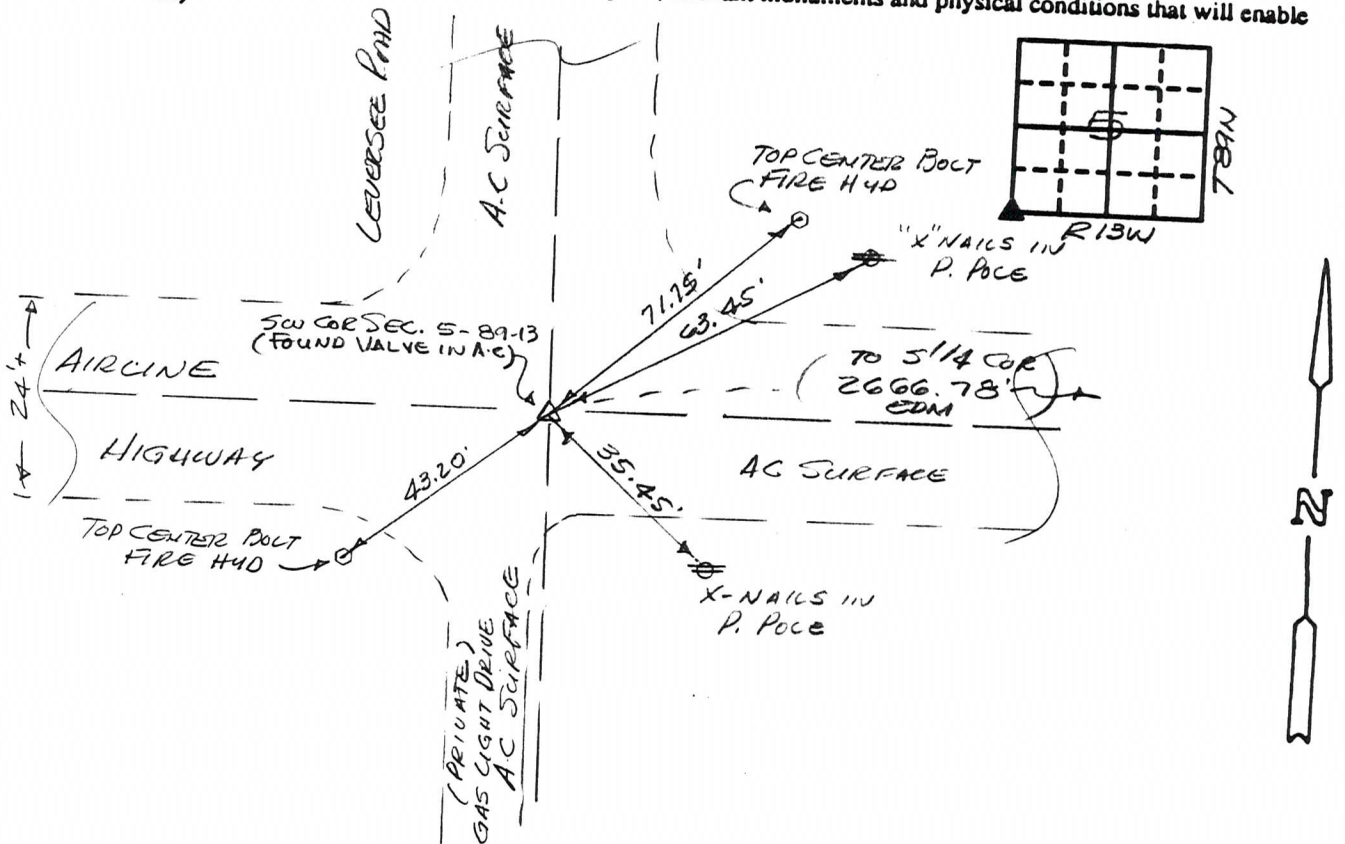 monuments and physical conditions that will enable
LEVERSEE ROAD
A.C SURFACE
5
T89N
R13W
TOP CENTER BOLT
FIRE HYD
"X" NAILS IN
P. POLE
71.75'
63.45'
SW COR SEC. 5-89-13
(FOUND VALVE IN A.C)
TO S 1/4 COR
2666.78'
EDM
24'±
AIRLINE
HIGHWAY
AC SURFACE
43.20'
35.45'
TOP CENTER BOLT
FIRE HYD
X-NAILS IN
P. POLE
(PRIVATE)
GAS LIGHT DRIVE
A.C SURFACE
N